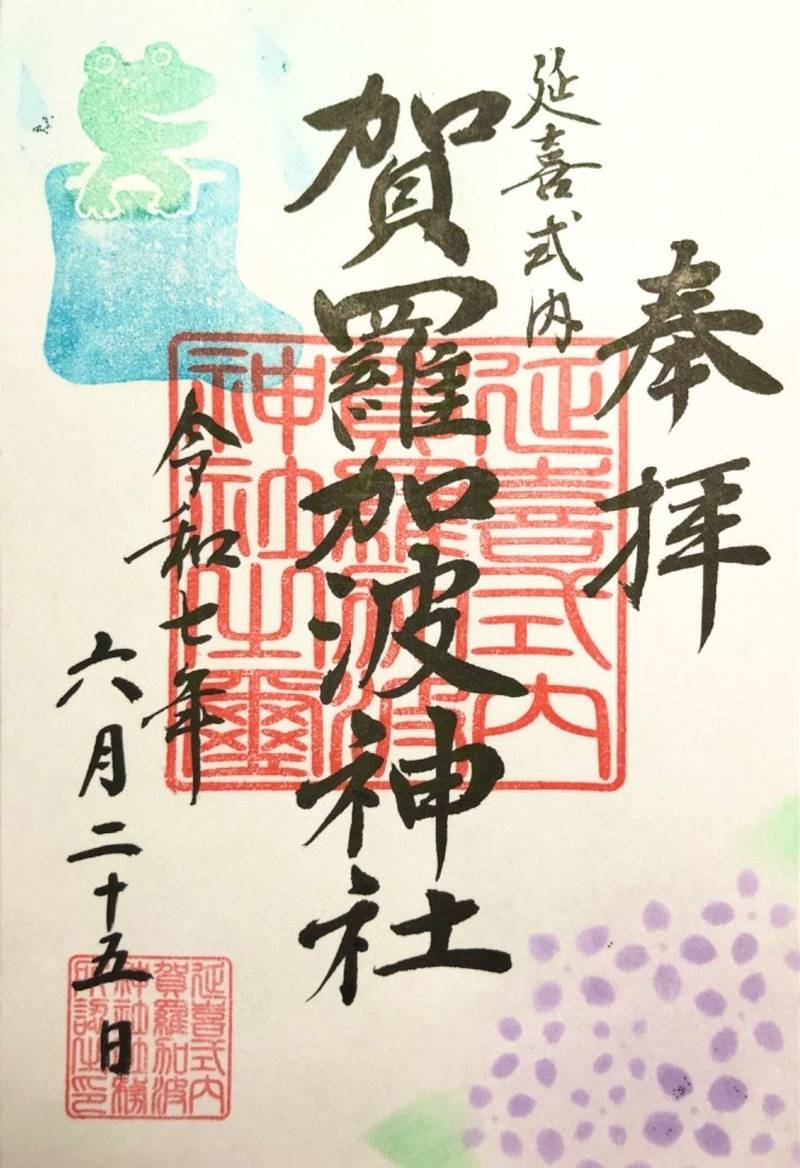 奉拝
延喜式内
賀羅加波神社
令和七年
六月二十五日
延喜式内
賀羅加波
神社之璽
延喜式内
賀羅加波
神社社務